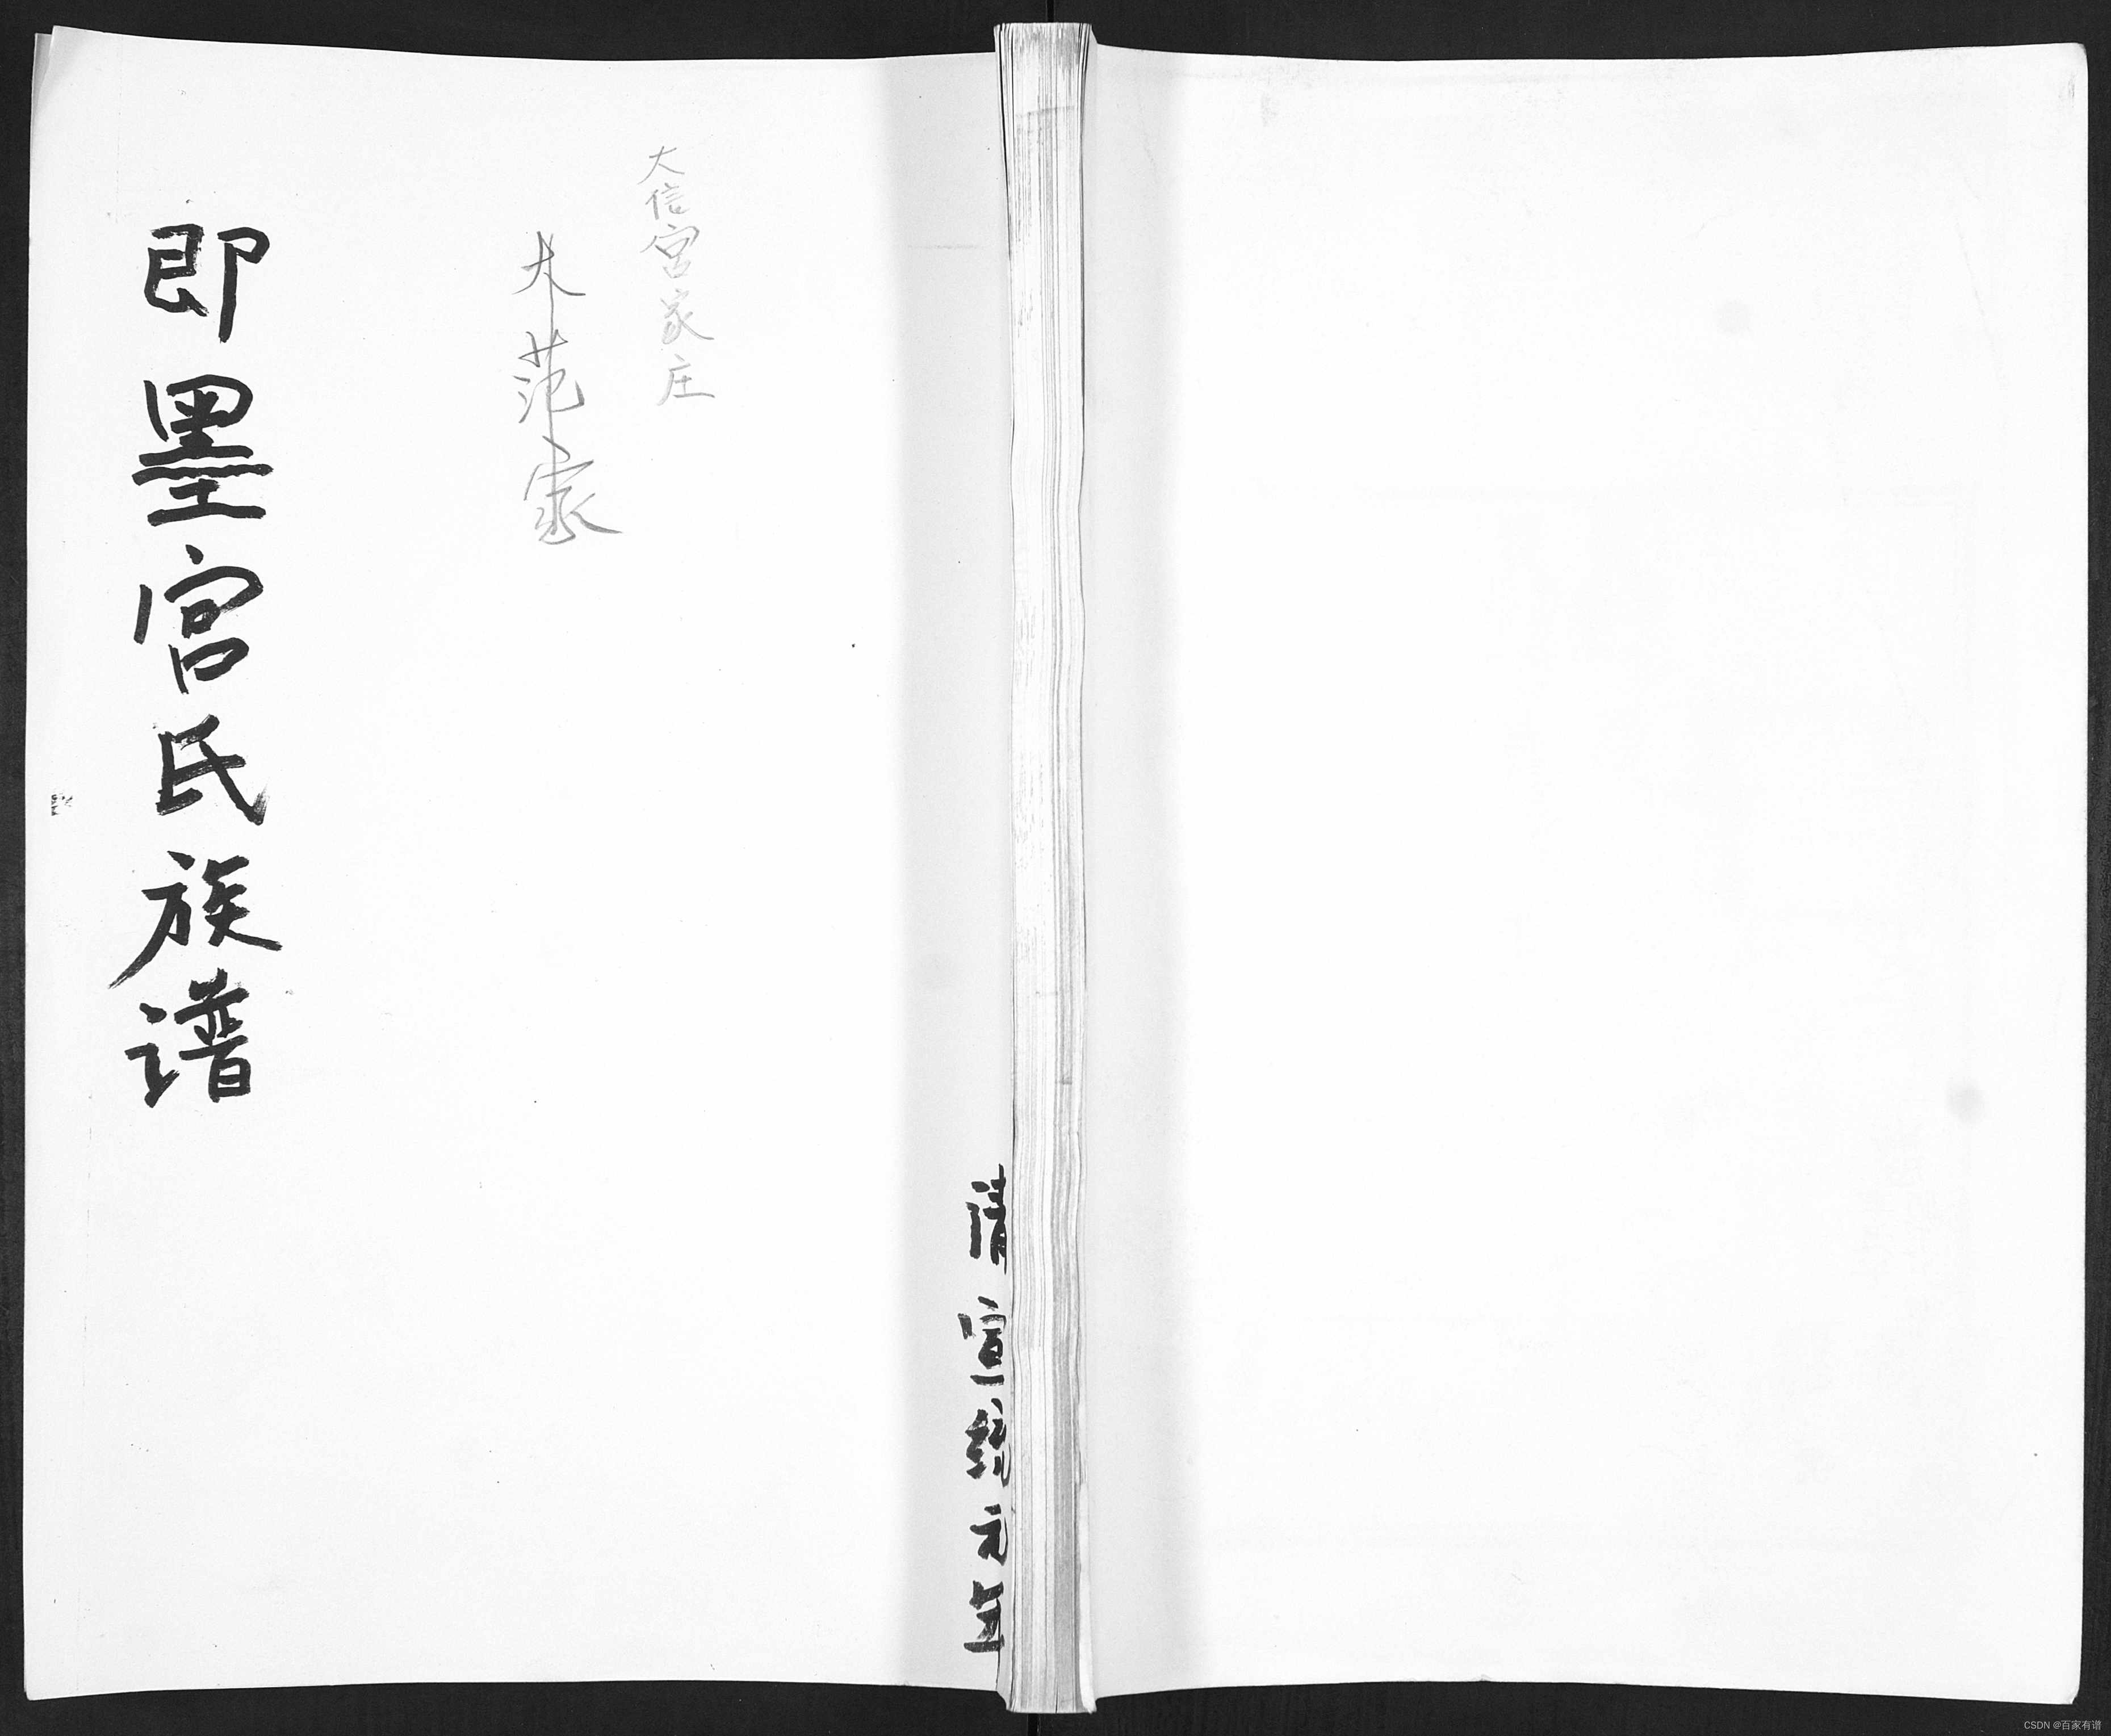 即墨宫氏族谱
大范家
大信宫家庄
清宣統元年
CSDN @百家有谱